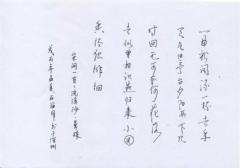 一曲新词酒一杯去年
天气旧亭台夕阳西下几
时回无可奈何花落
去似曾相识燕归来小园
香径独徘徊
宋词一首 浣溪沙 晏殊